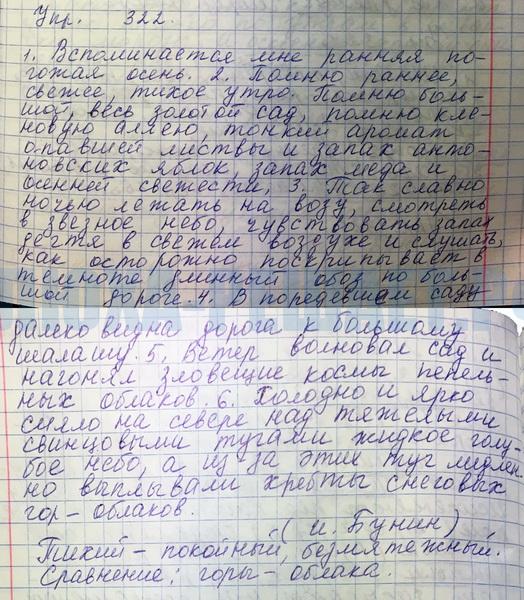 Упр. 322.
1. Вспоминается мне ранняя по-
гожая осень. 2. Помню раннее,
свежее, тихое утро. Помню боль-
шой, весь золотой сад, помню кле-
новую аллею, тонкий аромат
опавшей листвы и запах анто-
новских яблок, запах меда и
осенней свежести. 3. Так славно
ночью лежать на возу, смотреть
в звездное небо, чувствовать запах
дегтя в свежем воздухе и слушать,
как осторожно поскрипывает в
темноте длинный обоз по боль-
шой дороге. 4. В поредевшем саду
далеко видна дорога к большому
шалашу. 5. Ветер волновал сад и
нагонял зловещие космы пепель-
ных облаков. 6. Холодно и ярко
сияло на севере над тяжелыми
свинцовыми тучами жидкое голу-
бое небо, а из за этих туч медлен-
но выплывали хребты снеговых
гор-облаков.
(И. Бунин)
Тихий - покойный, безмятежный.
Сравнение: горы - облака.